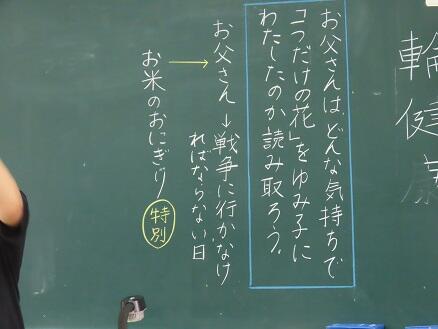 輪
健
康
お父さんは、どんな気持ちで
「一つだけの花」をゆみ子に
わたしたのか読み取ろう。
お父さん→戦争に行かなけ
ればならない日
→お米のおにぎり 特別